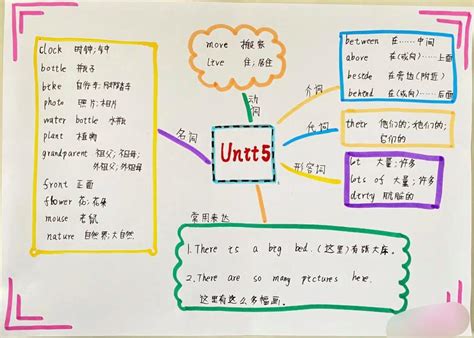 clock 时钟;钟
bottle 瓶子
bike 自行车;脚踏车
photo 照片;相片
water bottle 水瓶
plant 植物
grandparent 祖父;祖母;
外祖父;外祖母
front 正面
flower 花;花朵
mouse 老鼠
nature 自然界;大自然
名词
move 搬家
live 住;居住
动词
介词
between 在……中间
above 在(或向)……上面
beside 在旁边(附近)
behind 在(或向)……后面
代词
their 他们的;她们的;
它们的
形容词
lot 大量;许多
lots of 大量;许多
dirty 肮脏的
Unit5
常用表达
1.There is a big bed.(这里)有张大床。
2.There are so many pictures here.
这里有这么多幅画。